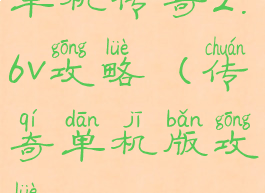 单机传奇2.
gōng lüè chuán
6v攻略（传
qí dān jī bǎn gōng
奇单机版攻
lüè